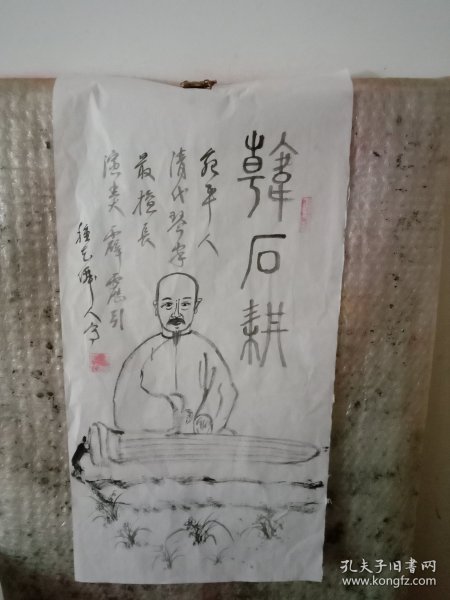 韓石耕
宛平人
清代琴家
最擅長
演奏霹靂引
人寫
孔夫子旧书网
www.kongfz.com